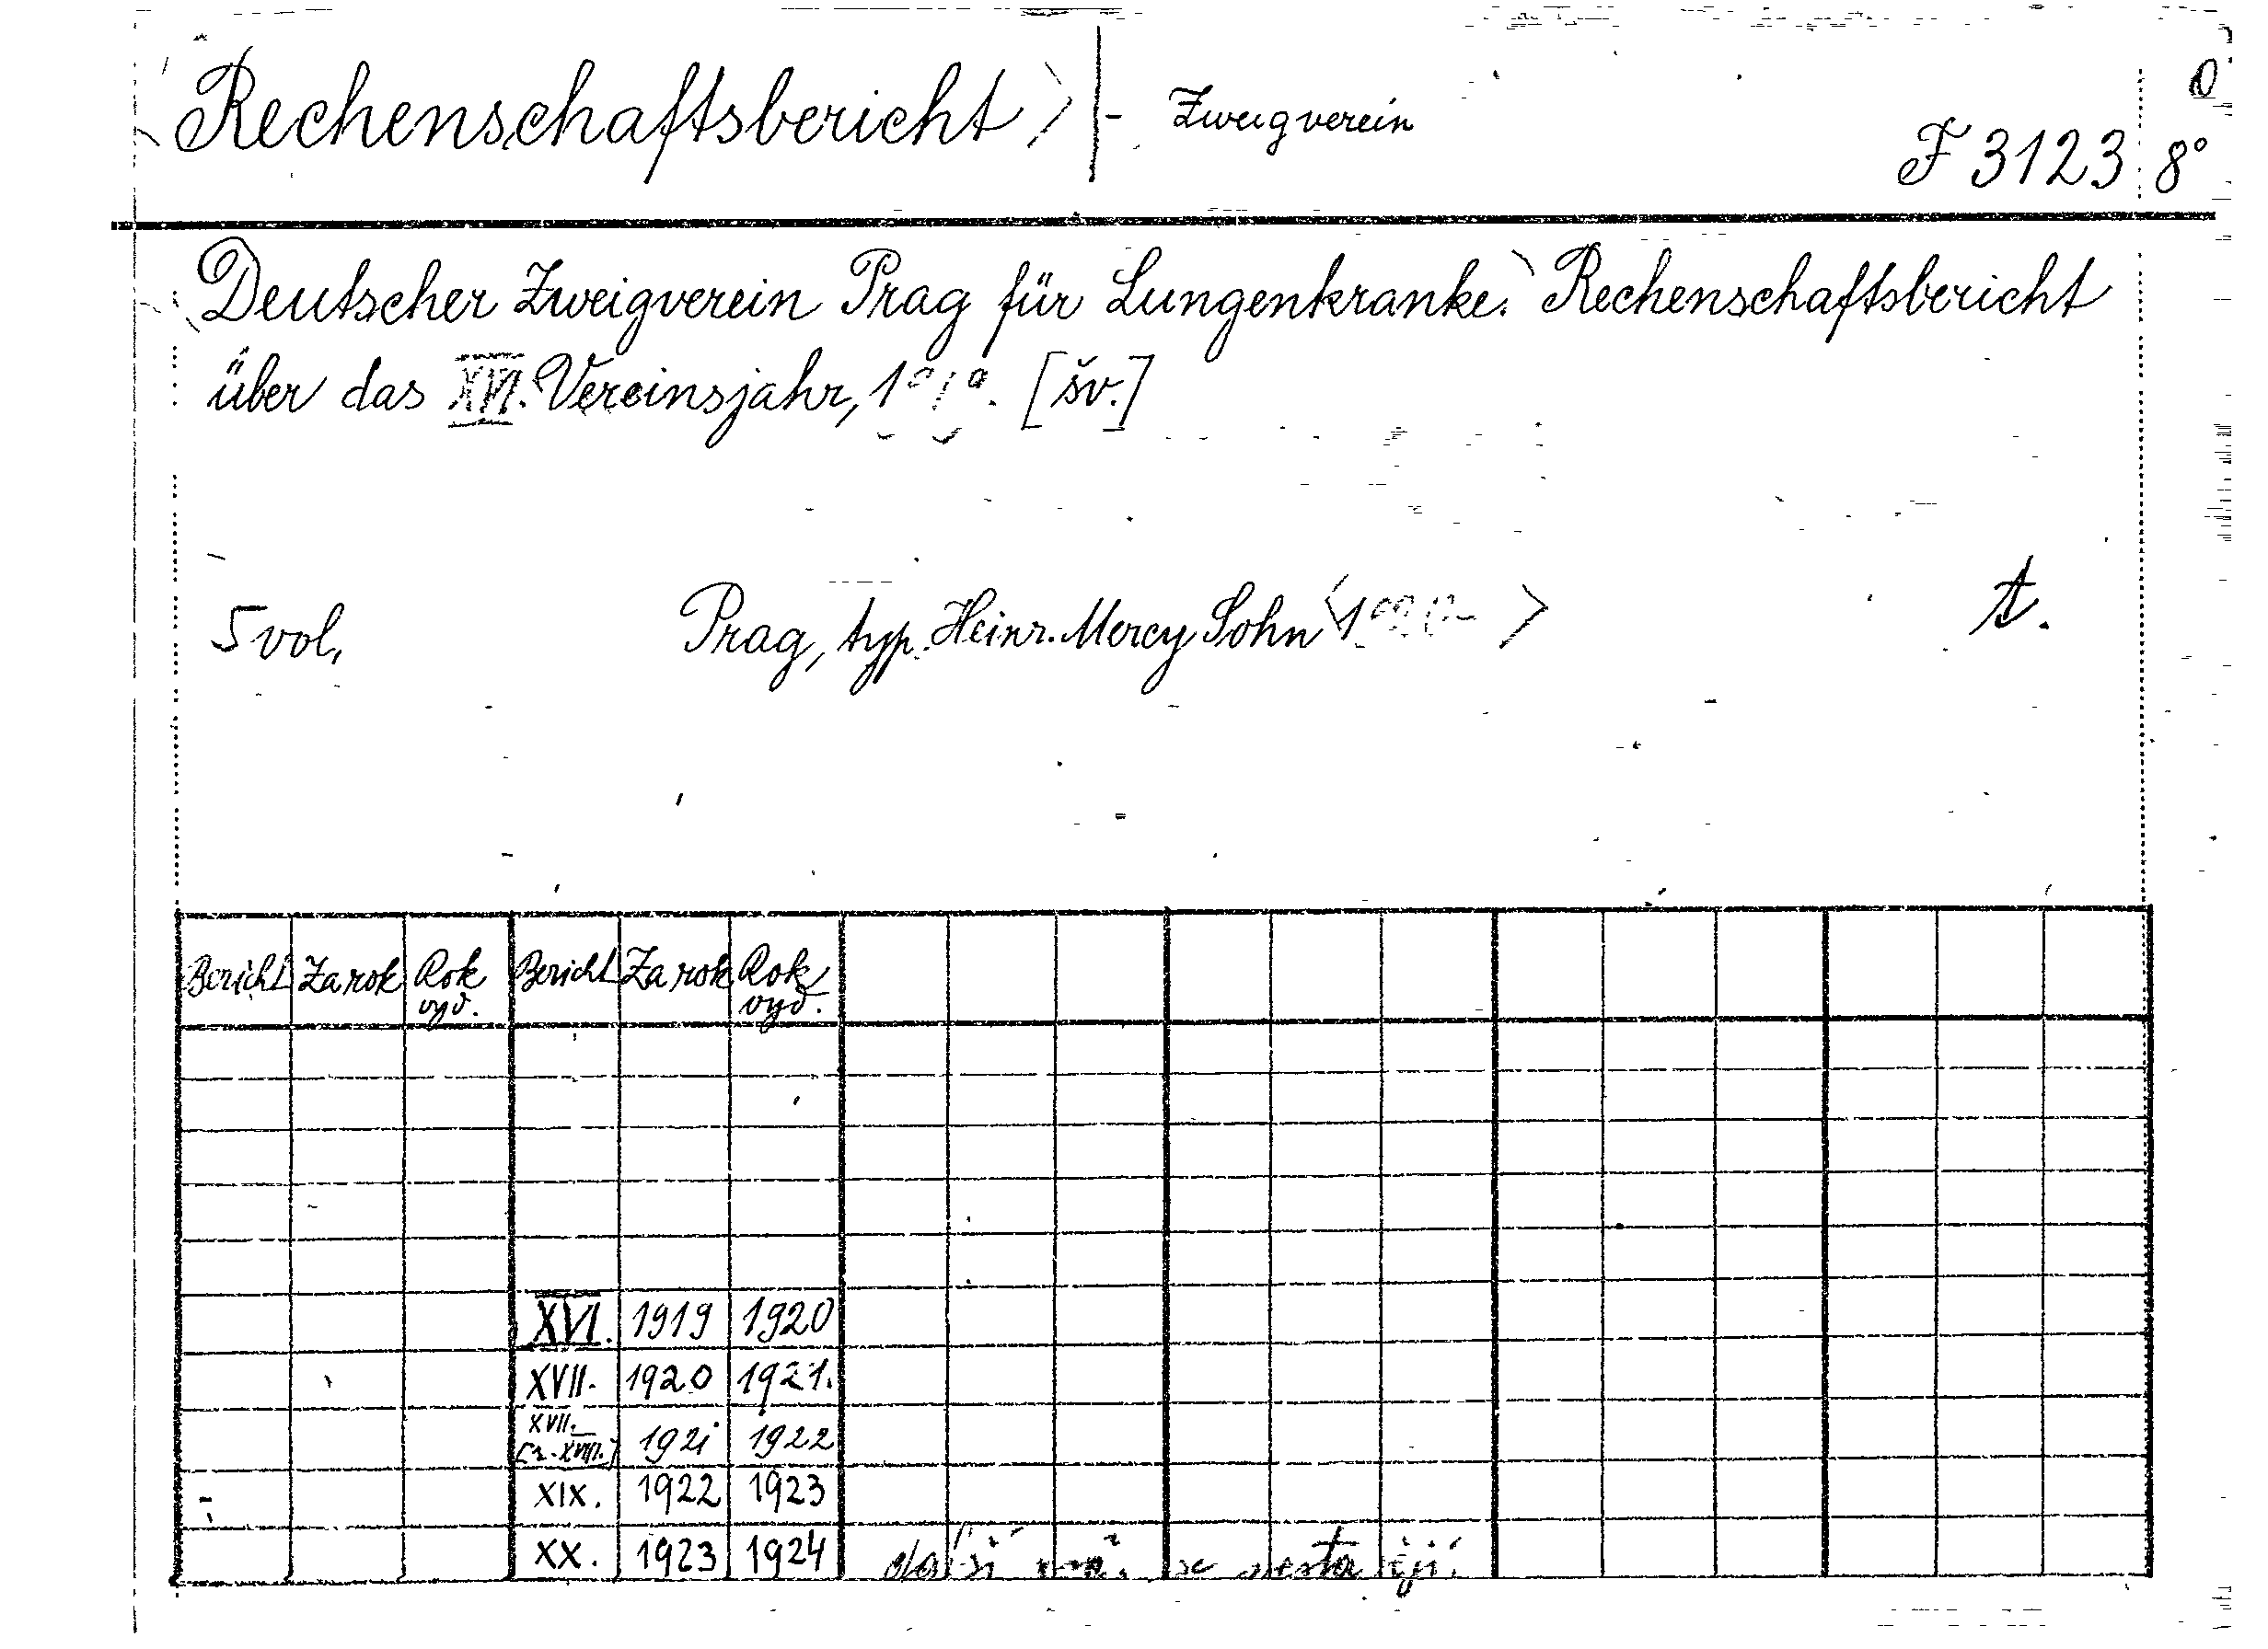 Rechenschaftsbericht - Zweigverein
F 3123 8°
Deutscher Zweigverein Prag für Lungenkranke. Rechenschaftsbericht
über das XVI. Vereinsjahr, [šv.]
5 vol. Prag, typ. Heinr. Mercy Sohn t.
Bericht Za rok Rok vyd. Bericht Za rok Rok vyd.
XVI. 1919 1920
XVII. 1920 1921.
XVII. [r. XVIII.] 1921 1922
XIX. 1922 1923
XX. 1923 1924 další se